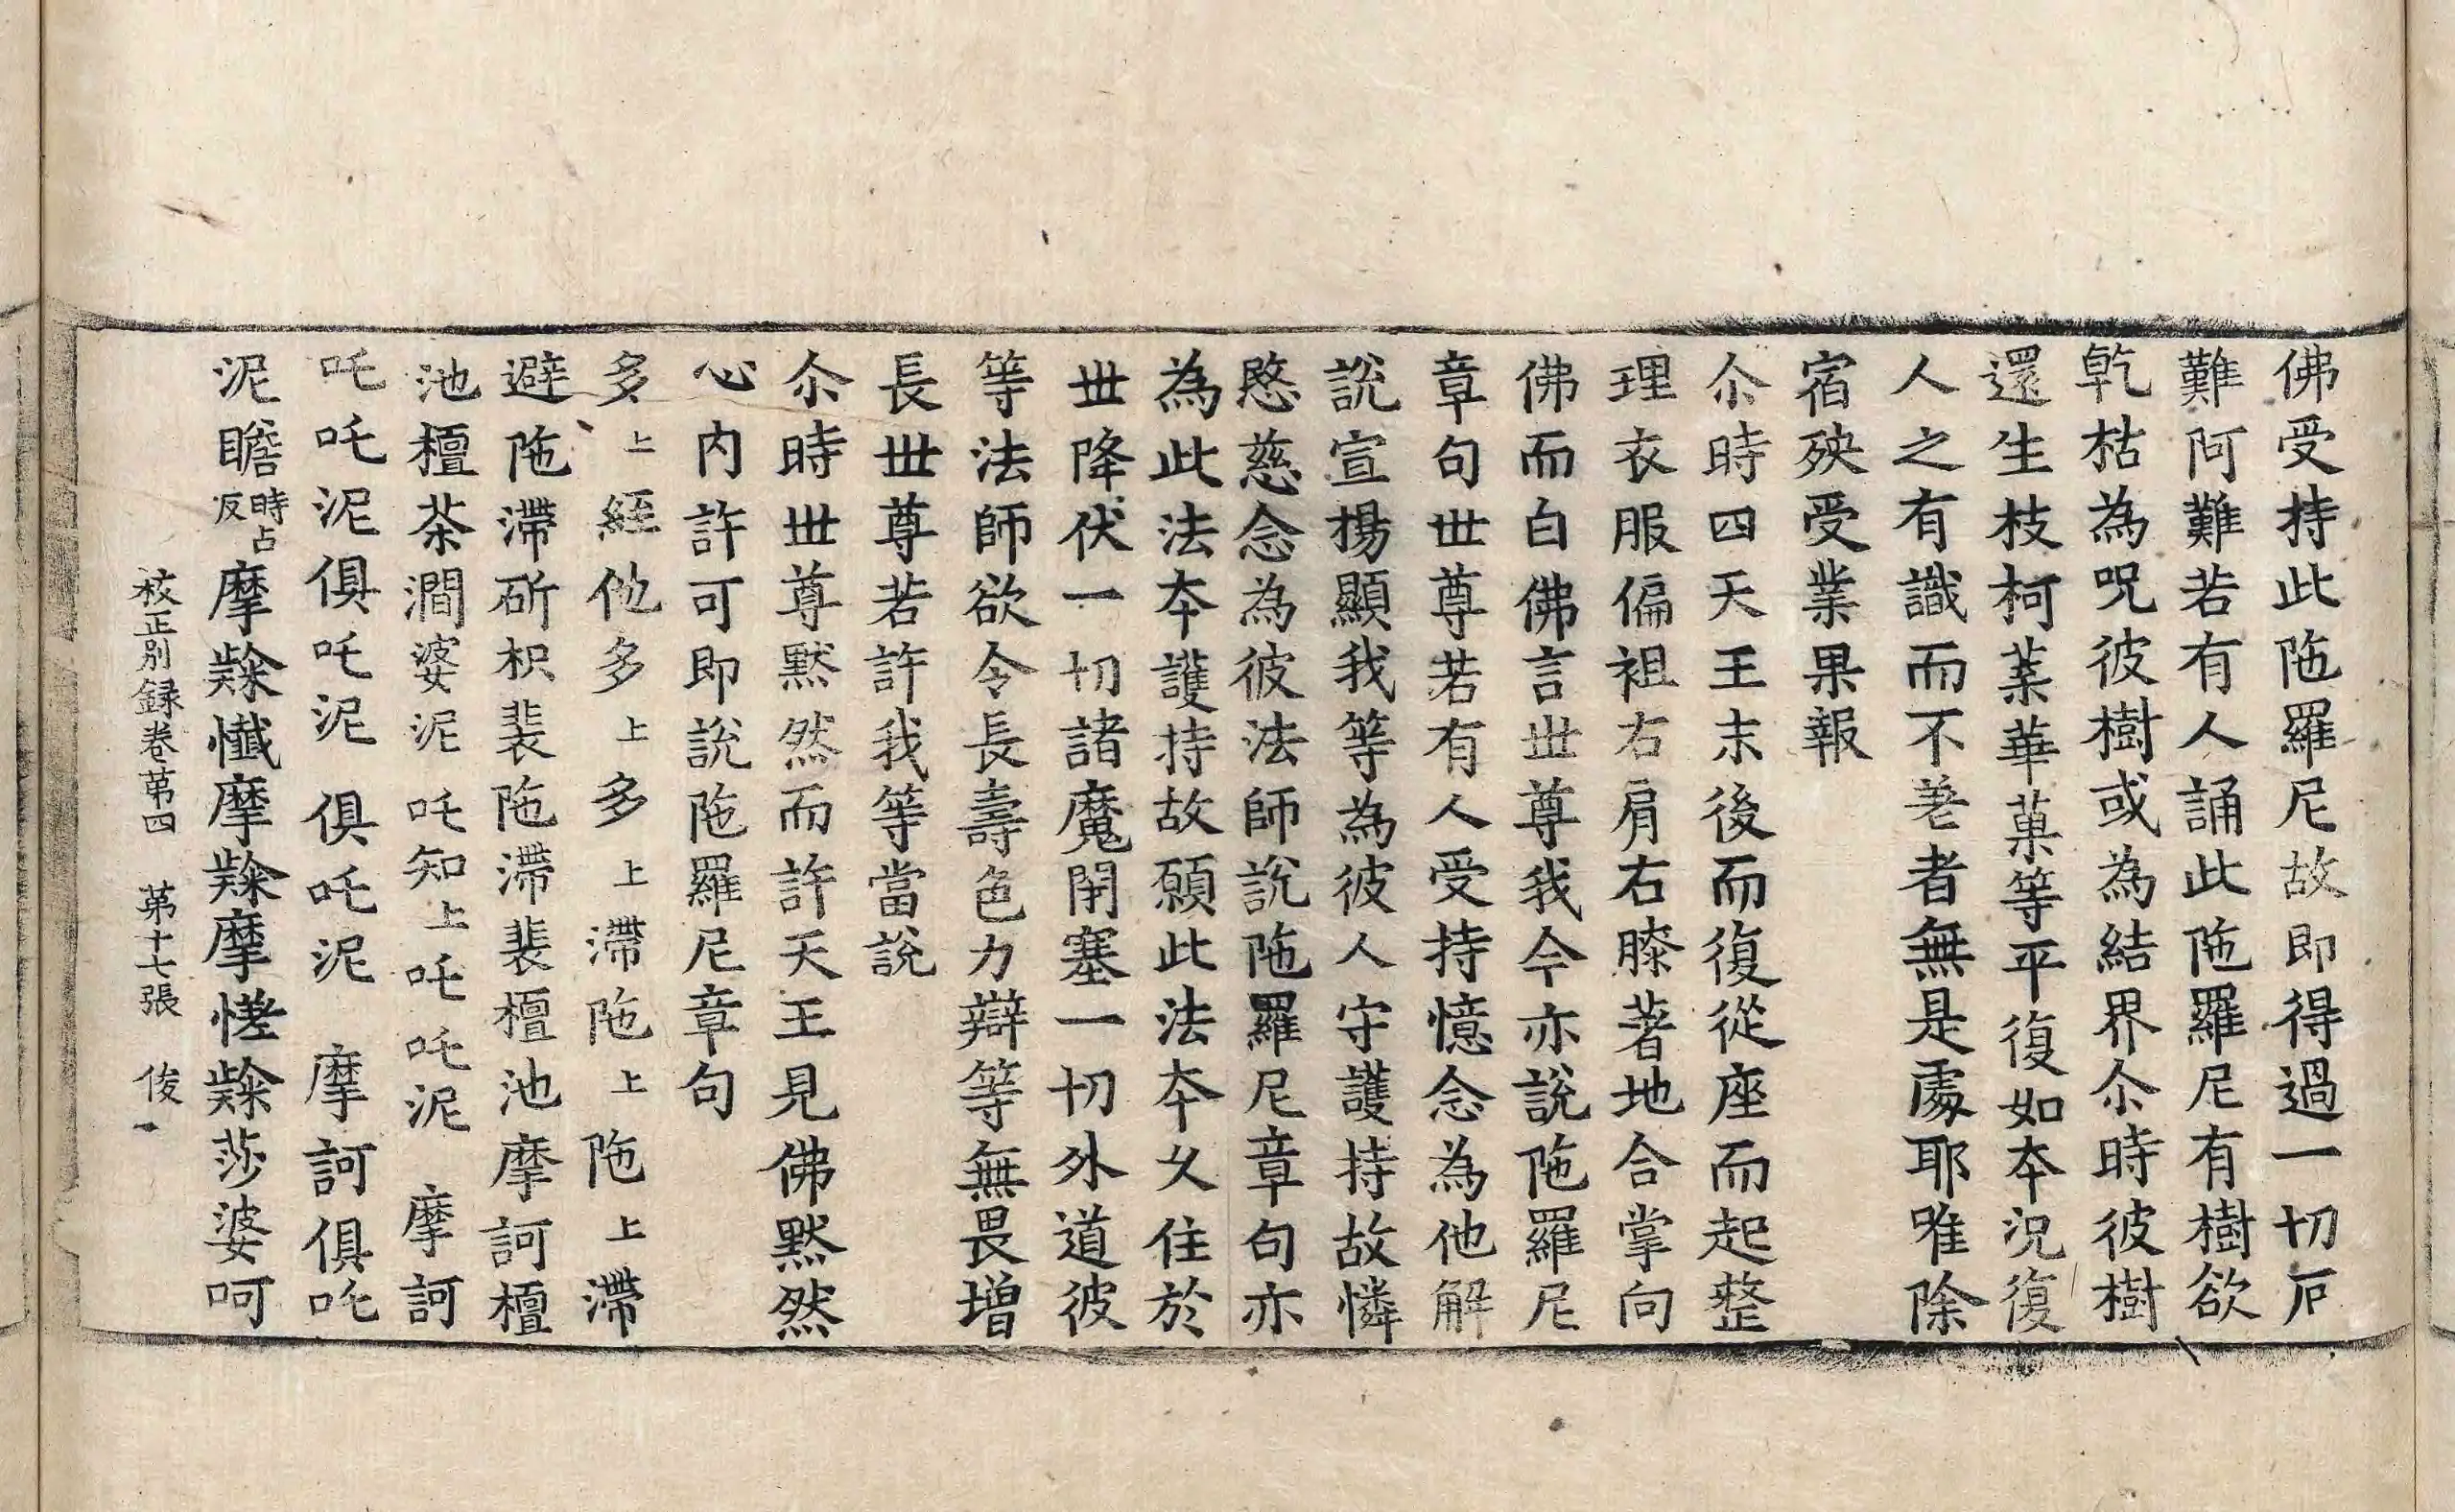 佛受持此陁羅尼故即得過一切厄
難阿難若有人誦此陁羅尼有樹欲
乾枯為呪彼樹或為結界尒時彼樹
還生枝柯葉華菓等平復如夲況復
人之有識而不差者無是處耶唯除
宿殃受業果報
尒時四天王末後而復從座而起整
理衣服偏袒右肩右膝著地合掌向
佛而白佛言世尊我今亦說陁羅尼
章句世尊若有人受持憶念為他解
說宣揚顯我等為彼人守護持故憐
愍慈念為彼法師說陁羅尼章句亦
為此法夲護持故願此法夲久住於
世降伏一切諸魔閇塞一切外道彼
等法師欲令長壽色力辯等無畏增
長世尊若許我等當說
尒時世尊黙然而許天王見佛黙然
心内許可即說陁羅尼章句
多上絰他多上多上滯陁上陁上滯
避陁滯斫枳裴陁滯裴檀池摩訶檀
池檀茶澗婆泥吒知上吒吒泥　摩訶
吒吒泥俱吒泥　俱吒泥　摩訶俱吒
泥瞻時占反摩㱤懺摩㱤摩㦬㱤莎婆呵
校正別録卷第四　第十七張　俊一